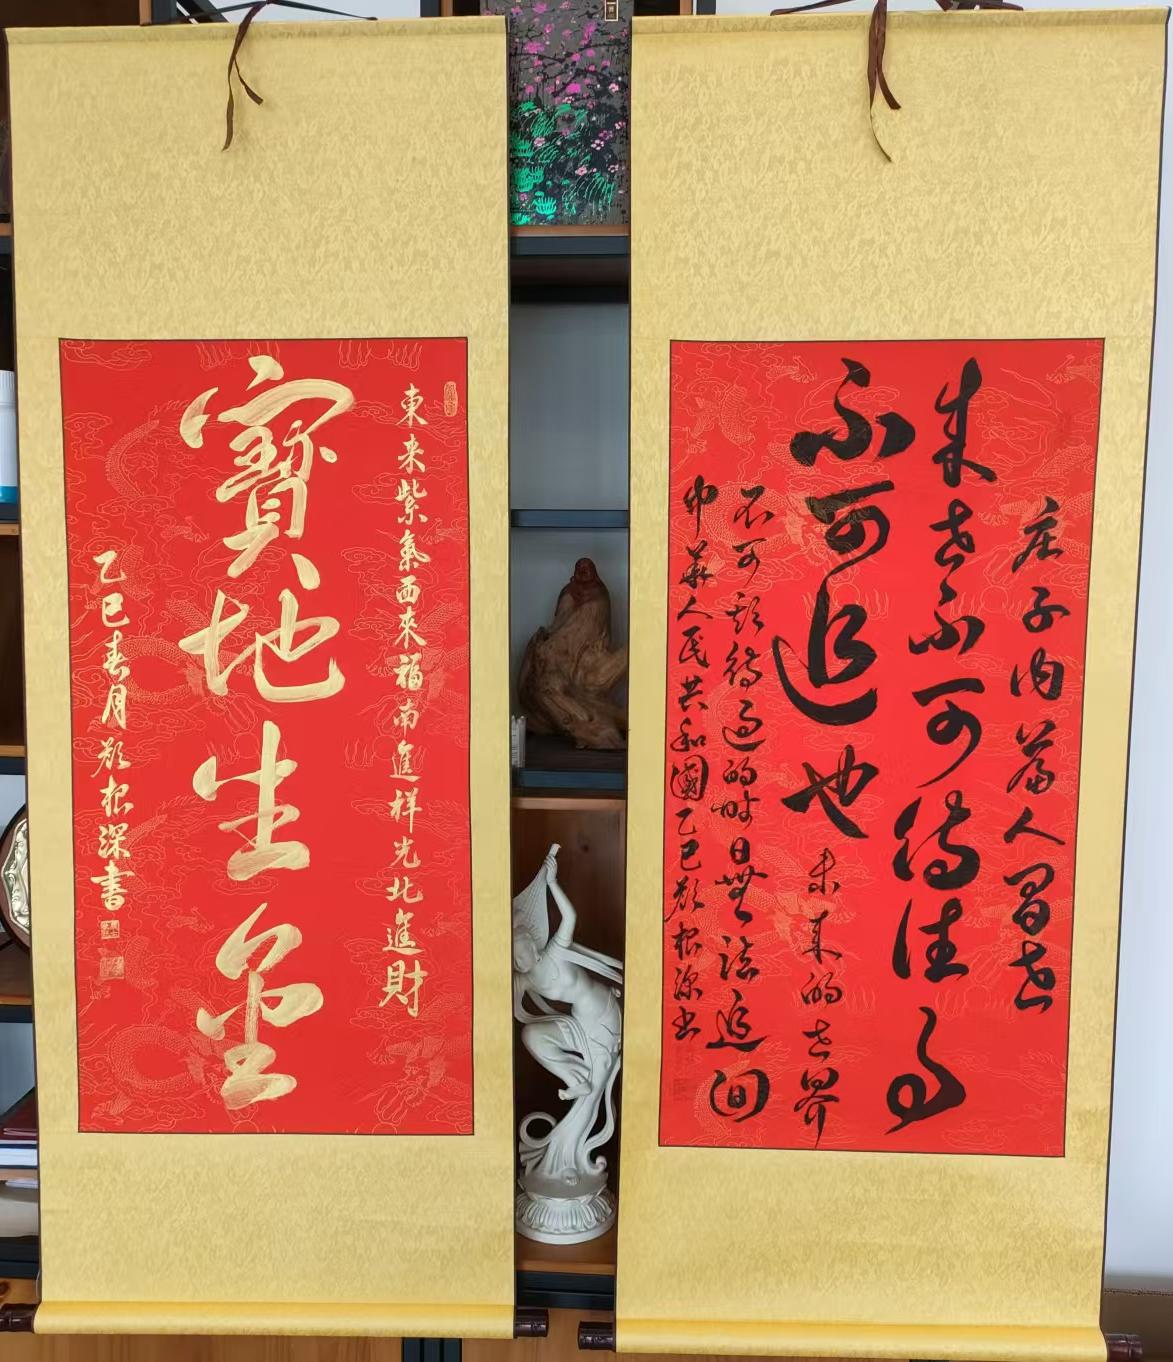 東来紫氣西來福南進祥光北進財
寶地生金
乙巳春月根深書
庄子内篇人间世
来世不可待往事
不可追也未来的世界
不可期待過的时日無法追回
中華人民共和國乙巳根深书